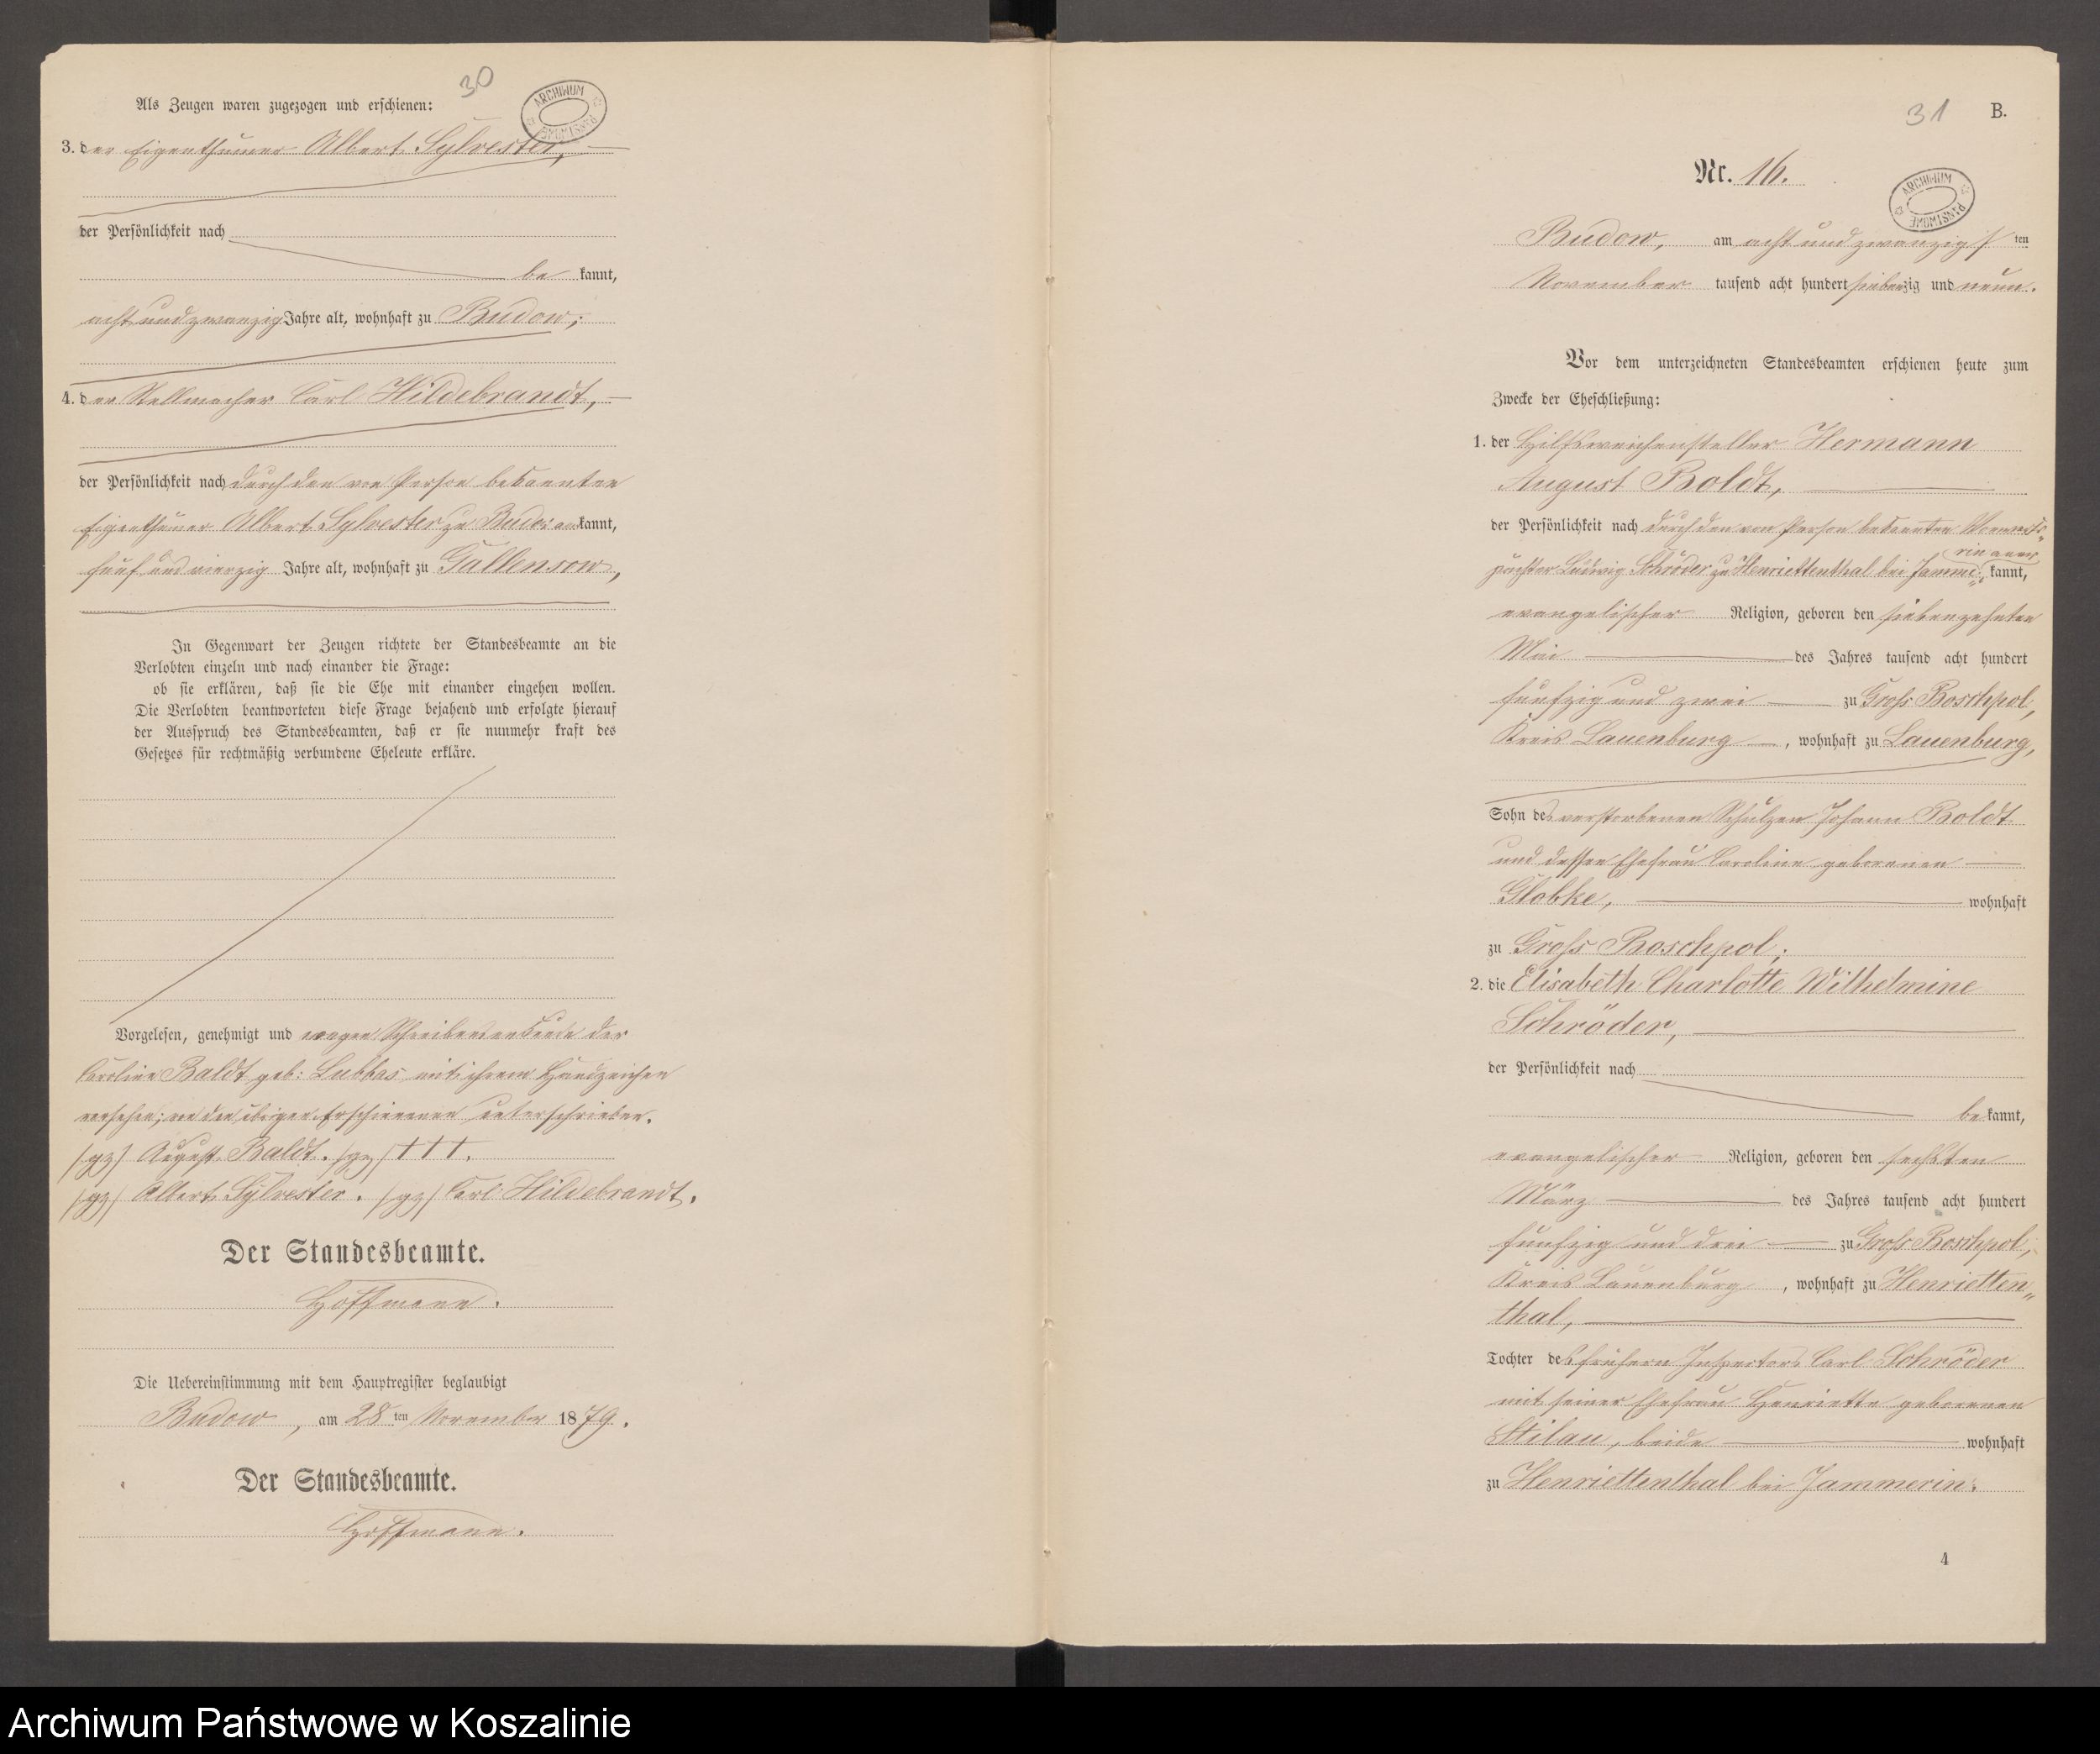 30
ARCHIWUM PAŃSTWOWE
Als Zeugen waren zugezogen und erschienen:
3. der Eigenthümer Albert Sylvester,
der Persönlichkeit nach
be kannt,
acht und zwanzig Jahre alt, wohnhaft zu Budow;
4. der Stellmacher Carl Hildebrandt,
der Persönlichkeit nach durch den von Person bekannten
Eigenthümer Albert Sylvester zu Budow anerkannt,
fünf und vierzig Jahre alt, wohnhaft zu Gallensow,
In Gegenwart der Zeugen richtete der Standesbeamte an die
Verlobten einzeln und nach einander die Frage:
ob sie erklären, daß sie die Ehe mit einander eingehen wollen.
Die Verlobten beantworteten diese Frage bejahend und erfolgte hierauf
der Ausspruch des Standesbeamten, daß er sie nunmehr kraft des
Gesetzes für rechtmäßig verbundene Eheleute erkläre.
Vorgelesen, genehmigt und wegen Schreibensunkunde der
Caroline Baldt geb: Lubbas mit ihrem Handzeichen
versehen; von den übrigen Erschienenen unterschrieben.
/gz/ August Baldt. /gz/ †††.
/gz/ Albert Sylvester. /gz/ Carl Hildebrandt.
Der Standesbeamte.
Hoffmann.
Die Uebereinstimmung mit dem Hauptregister beglaubigt
Budow, am 28ten November 1879.
Der Standesbeamte.
Hoffmann.
31 B.
Nr. 16.
ARCHIWUM PAŃSTWOWE
Budow, am acht und zwanzigsten
November tausend acht hundert siebenzig und neun.
Vor dem unterzeichneten Standesbeamten erschienen heute zum
Zwecke der Eheschließung:
1. der Hilfsweichensteller Hermann
August Boldt,
der Persönlichkeit nach durch den von Person bekannten
rin aner
pächter Ludwig Schröder zu Henriettenthal bei Jamme= kannt,
evangelischer Religion, geboren den siebenzehnten
Mai des Jahres tausend acht hundert
fünfzig und zwei zu Groß Boschpol,
Kreis Lauenburg, wohnhaft zu Lauenburg,
Sohn des verstorbenen Schulzen Johann Boldt
und dessen Ehefrau Caroline geborenen
Globke, wohnhaft
zu Groß Boschpol;
2. die Elisabeth Charlotte Wilhelmine
Schröder,
der Persönlichkeit nach
be kannt,
evangelischer Religion, geboren den sechsten
März des Jahres tausend acht hundert
fünfzig und drei zu Groß Boschpol,
Kreis Lauenburg, wohnhaft zu Henrietten=
thal,
Tochter des frühern Inspectors Carl Schröder
mit seiner Ehefrau Henriette geborenen
Stilau, beide wohnhaft
zu Henriettenthal bei Jammerin.
4
Archiwum Państwowe w Koszalinie